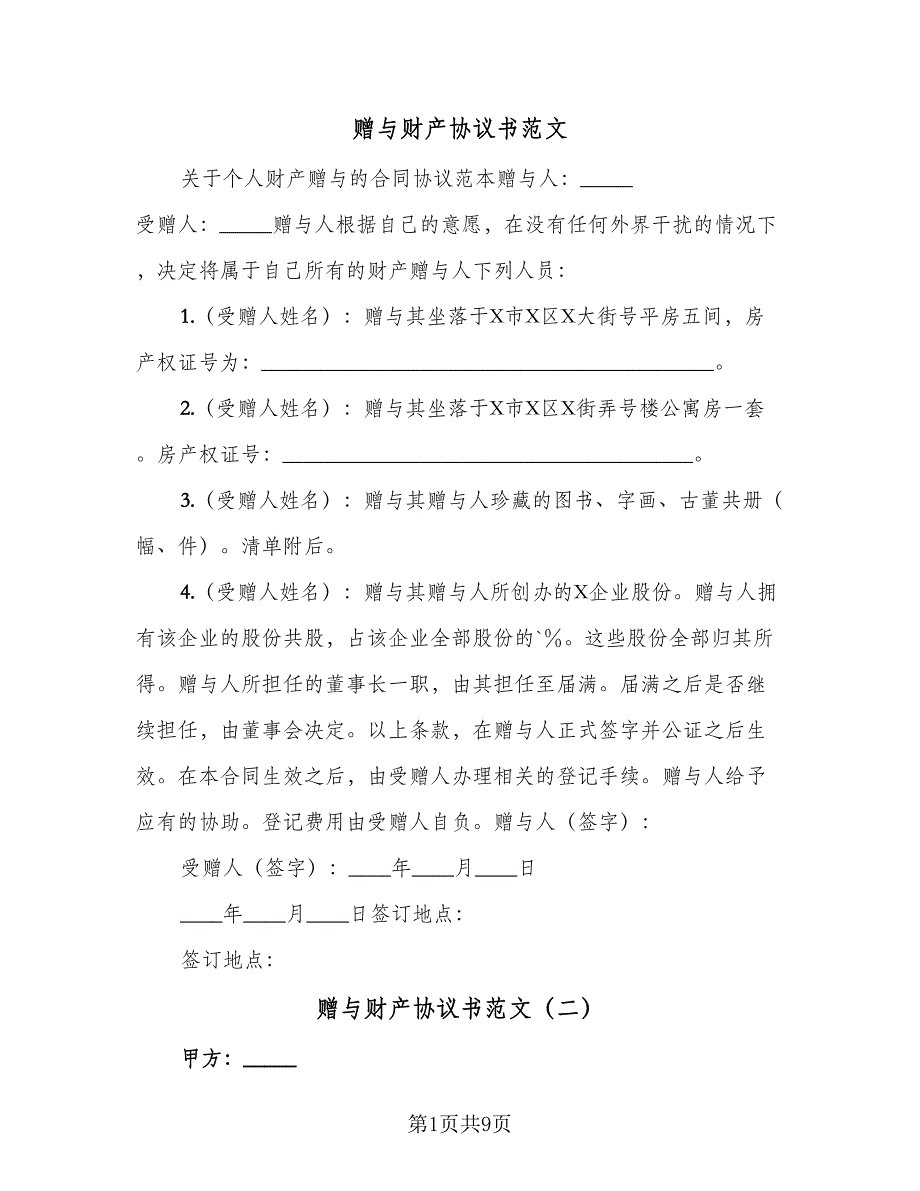 赠与财产协议书范文
关于个人财产赠与的合同协议范本赠与人：_____
受赠人：_____赠与人根据自己的意愿，在没有任何外界干扰的情况下
，决定将属于自己所有的财产赠与人下列人员：
1.（受赠人姓名）：赠与其坐落于X市X区X大街号平房五间，房
产权证号为：___________________________________________。
2.（受赠人姓名）：赠与其坐落于X市X区X街弄号楼公寓房一套
。房产权证号：_______________________________________。
3.（受赠人姓名）：赠与其赠与人珍藏的图书、字画、古董共册（
幅、件）。清单附后。
4.（受赠人姓名）：赠与其赠与人所创办的X企业股份。赠与人拥
有该企业的股份共股，占该企业全部股份的`%。这些股份全部归其所
得。赠与人所担任的董事长一职，由其担任至届满。届满之后是否继
续担任，由董事会决定。以上条款，在赠与人正式签字并公证之后生
效。在本合同生效之后，由受赠人办理相关的登记手续。赠与人给予
应有的协助。登记费用由受赠人自负。赠与人（签字）：
受赠人（签字）：____年____月____日
____年____月____日签订地点：
签订地点：
赠与财产协议书范文（二）
甲方：_____
第1页共9页